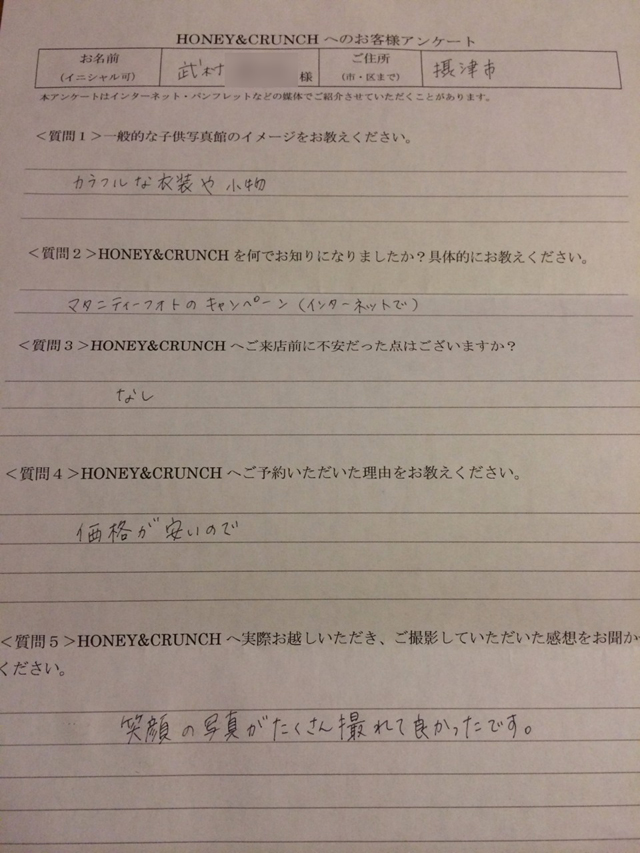 HONEY&CRUNCH へのお客様アンケート
お名前
(イニシャル可)
武村
様
ご住所
(市・区まで)
摂津市
本アンケートはインターネット・パンフレットなどの媒体でご紹介させていただくことがあります。
＜質問１＞一般的な子供写真館のイメージをお教えください。
カラフルな衣装や小物
＜質問２＞HONEY&CRUNCH を何でお知りになりましたか？具体的にお教えください。
マタニティーフォトのキャンペーン(インターネットで)
＜質問３＞HONEY&CRUNCH へご来店前に不安だった点はございますか？
なし
＜質問４＞HONEY&CRUNCH へご予約いただいた理由をお教えください。
価格が安いので
＜質問５＞HONEY&CRUNCH へ実際お越しいただき、ご撮影していただいた感想をお聞か
ください。
笑顔の写真がたくさん撮れて良かったです。